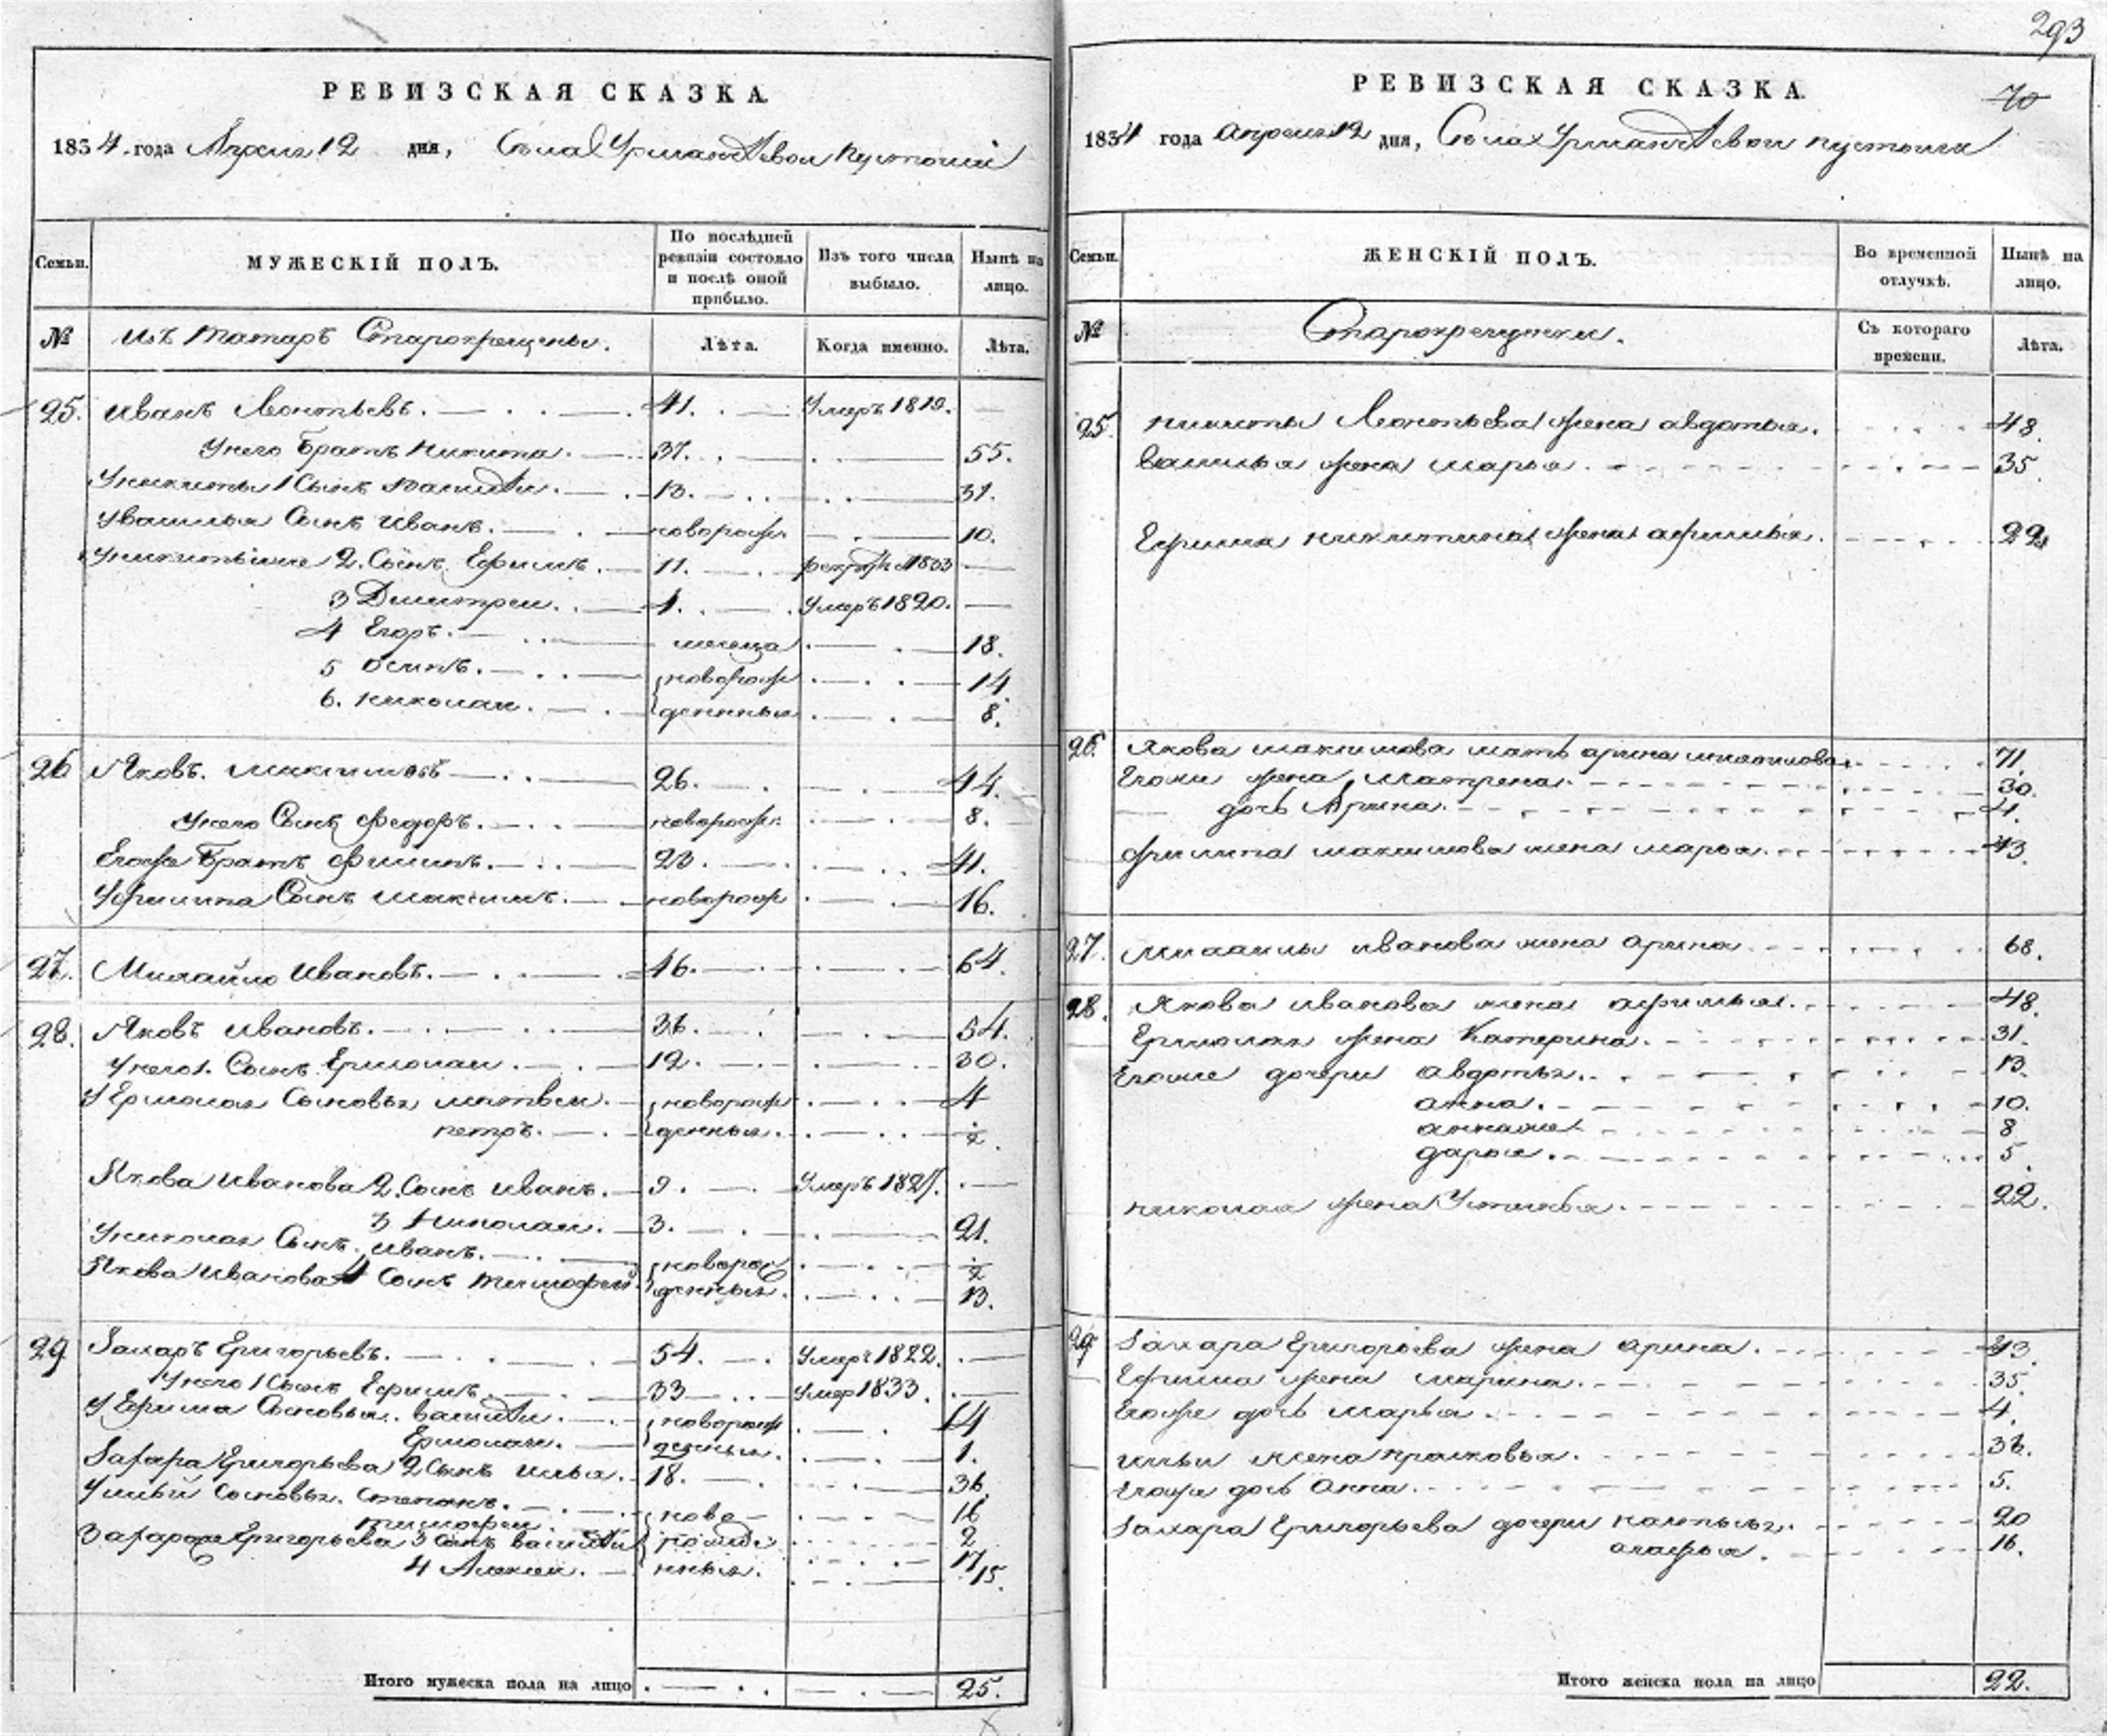 РЕВИЗСКАЯ СКАЗКА.
1834 года Апреля 12 дня, Села Урмандѣевой Пустоши
Семьи.
МУЖЕСКІЙ ПОЛЪ.
По послѣдней ревизіи состояло и послѣ оной прибыло.
Изъ того числа выбыло.
Нынѣ на лицо.
№
Изъ татаръ Старокрещены.
Лѣта.
Когда именно.
Лѣта.
25. Иванъ Леонтьевъ. 41. Умеръ 1819.
У него братъ Никита. 37. 55.
У Никиты 1 Сынъ Василѣй. 13. 31.
У Василья Сынъ Иванъ. новорож. 10.
2. Сынъ Ефимъ. 11. 1833
3 Дмитрей. 4. Умеръ 1820.
4 Егоръ. месеца 18.
5 Осипъ. новорож 14
6. Николай. денныя 8.
26 Яковъ. Максимовъ 26. 44.
У него Сынъ Федоръ. новорож. 8.
Егоже Братъ Филипъ. 23. 41.
У Филипа Сынъ Максимъ. новорож 16.
27. Михайло Ивановъ. 46. 64.
28. Яковъ Ивановъ. 36. 54.
У него 1. Сынъ Ермолай. 12. 30.
У Ермолая Сыновья Матвей. новорож 4
Петръ. денныя. ½
Якова Иванова 2. Сынъ Иванъ. 9. Умеръ 1827.
3 Николай. 3. 21.
У Николая Сынъ. Иванъ. новорож ½
Якова Иванова 4 Сынъ Тимофей. денныя. 13.
29 Захаръ Григорьевъ. 54. Умеръ 1822.
У него 1 Сынъ Ефимъ. 33 Умер 1833.
У Ефима Сыновья. Василѣй. новорож 14
Ермолай. денныя. 1.
Захара Григорьева 2 Сынъ Илья. 18. 36.
У Ильи Сыновья. Степанъ. ново- 16
Тимофей. 2
Захара Григорьева 3 Сынъ Василѣй рожде 17
4 Алексей. нныя. 15.
Итого мужеска пола на лицо 25.
293
70
РЕВИЗСКАЯ СКАЗКА.
1834 года Апреля 12 дня, Села Урмандѣевой Пустоши
Семьи.
ЖЕНСКІЙ ПОЛЪ.
Во временной отлучкѣ.
Нынѣ на лицо.
№
Старокрещенки.
Съ котораго времени.
Лѣта.
25. Никиты Леонтьева жена Авдотья. 48.
Василья жена Марья. 35
Ефима Никитина жена Афимья. 22
26. Якова Максимова мать Арина 71.
Егоже жена Матрена. 30.
дочь Арина. 4.
Филипа Максимова жена Марья. 43.
27. Михайлы Иванова жена Арина 68.
28. Якова Иванова жена Афимья. 48.
Ермолая жена Катерина. 31.
Егоже дочери Авдотья. 13.
Анна. 10.
8
Дарья. 5.
Николая жена Устинья. 22.
29 Захара Григорьева жена Арина. 43.
Ефима жена Марина. 35.
Егоже дочь Марья. 4.
Ильи жена Прасковья. 36.
Егоже дочь Анна. 5.
Захара Григорьева дочери 20
Агафья. 16.
Итого женска пола на лицо 22.